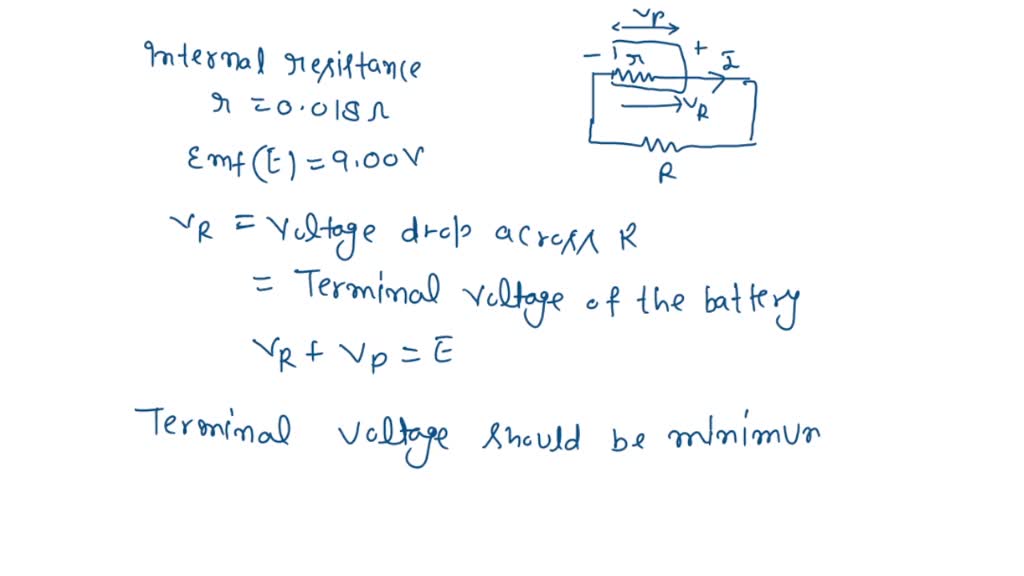 Internal resistance
r = 0.018 Ω
Emf (E) = 9.00V
VP
- r + I
VR
R
VR = Voltage drop across R
= Terminal voltage of the battery
VR + VP = E
Terminal voltage should be minimum